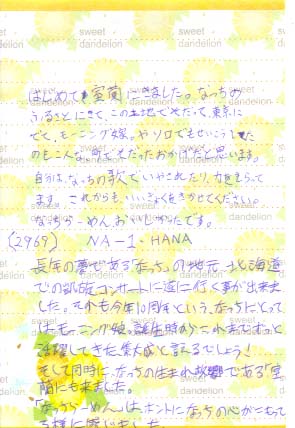 sweet dandelion
はじめて室蘭にきました。なっちの
ふるさとにきて、この土地でそだって、東京に
でて、モーニング娘。やソロでもせいこうした
のもこんな町でそだったおかげだと思います。
自分はなっちの歌でいやされたり、力をもらって
ます。これからも、いいきょくをきかせてください。
なっちらーめん、おいしかったです。
(2969) NA-1・HANA
長年の夢である「なっち」の地元-北海道
での凱旋コンサートに遂に行く事が出来ま
した。しかも今年10周年という、なっちにとって
はモーニング娘。誕生時からこれまでずっと
活躍してきた集大成と言えるでしょう！
そして同時に、なっちの生まれ故郷である「室
蘭」にも来ました。
「なっちらーめん」はホントになっちの心がこもって
る様に感じました。